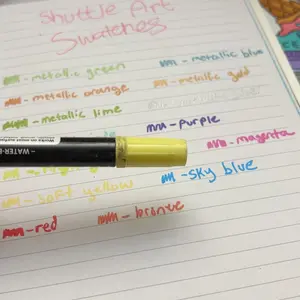 Shuttle Art
Swatches
- metallic green
- metallic blue
- metallic orange
- metallic gold
- metallic lime
- purple
- magenta
- sky blue
- soft yellow
- red
- bronze
- WATER-